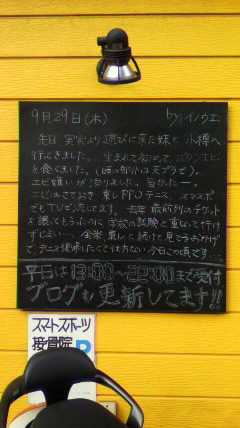 9月29日(木) by イノウエ
先日 実家より遊びに来た妹と 小樽へ
行ってきました。生まれて初めて ボタンエビ
を食べました。(頭の部分はミソラで)。
エビ嫌いが治りました。旨かったー。
エビはさておき 東レPPOテニス スマスポ
でもTVで流してます。去年 最前列のチケット
を譲てもらったのに 学校の試験と重なって行け
ずじまい…。全米、東レと続けて見てるおかげ
で、テニス復帰したくて仕方ない今日この頃です…。
平日は13:00〜22:00まで受付
ブログも更新してます!!
スマートスポーツ
接骨院
P